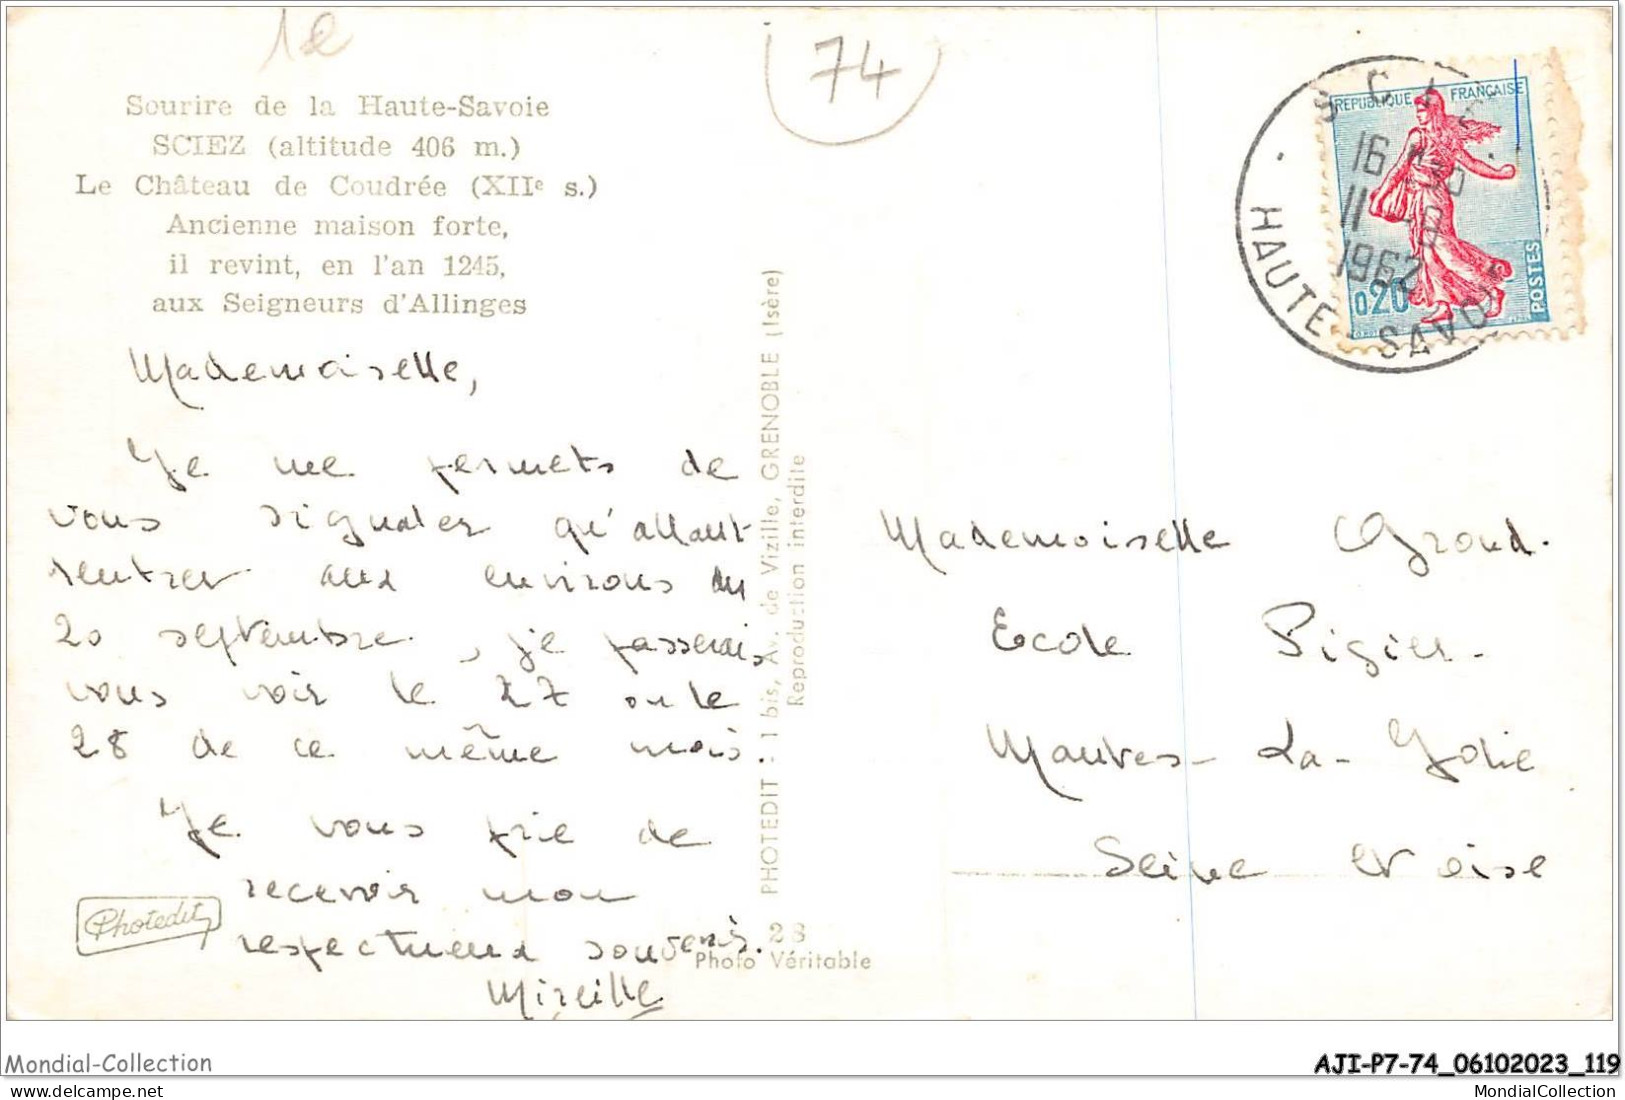 1e
74
Sourire de la Haute-Savoie
SCIEZ (altitude 406 m.)
Le Château de Coudrée (XIIe s.)
Ancienne maison forte,
il revint, en l'an 1245,
aux Seigneurs d'Allinges
Mademoiselle,
Je me permets de
vous signaler qu'allant
rentrer aux environs du
20 septembre, je passerais
vous voir le 27 ou le
28 de ce même mois.
Je vous prie de
recevoir mon
respectueux souvenir.
Mireille
Photedit
PHOTEDIT - 1 bis, Av. de Vizille, GRENOBLE (Isère)
Reproduction interdite
28
Photo Véritable
REPUBLIQUE FRANÇAISE
0,20
POSTES
SCIEZ
16 30
11 -9
1962
HAUTE SAVOIE
Mademoiselle Grand.
Ecole Pigier.
Mantes-La-Jolie
Seine et Oise
Mondial-Collection
AJI-P7-74_06102023_119
MondialCollection